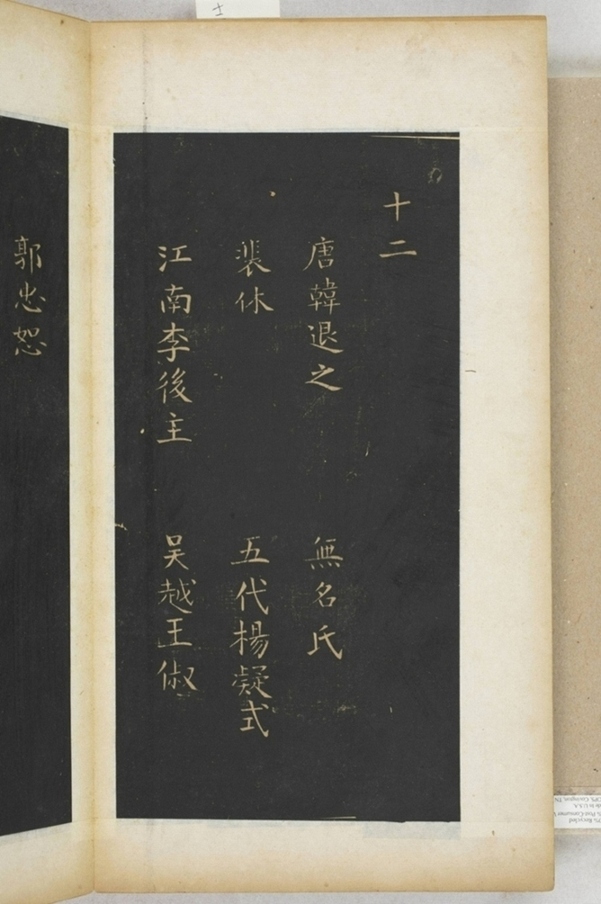 十二
唐韓退之 無名氏
裴休 五代楊凝式
江南李後主 吴越王俶
郭忠恕